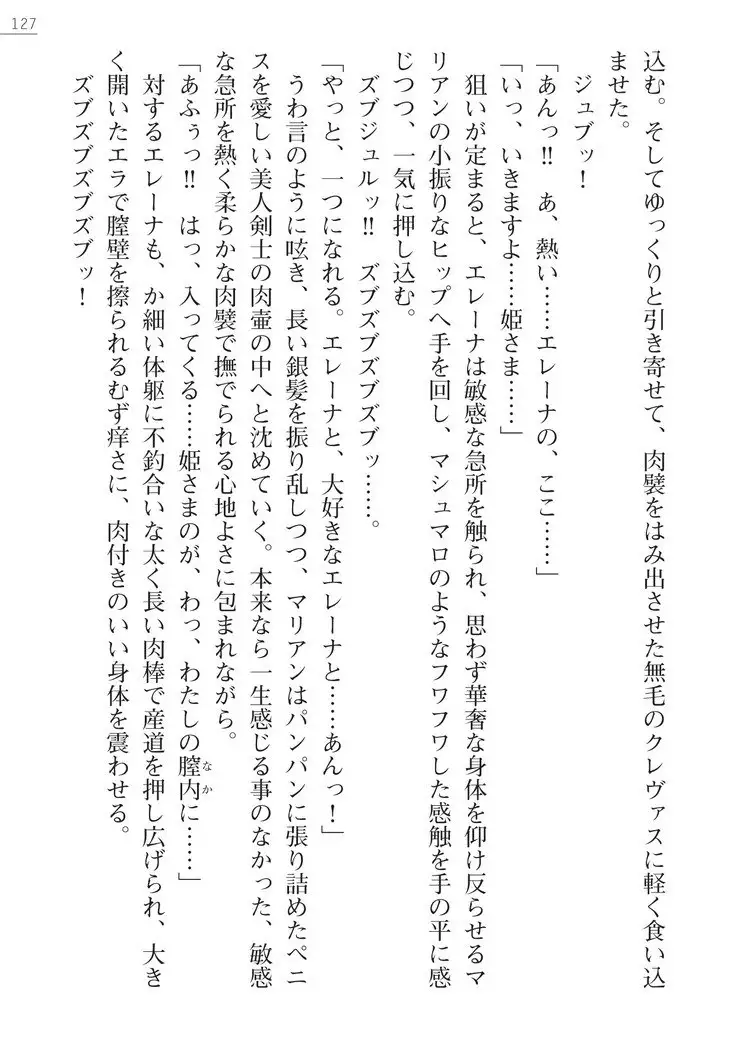 127
込む。そしてゆっくりと引き寄せて、肉襞をはみ出させた無毛のクレヴァスに軽く食い込
ませた。
ジュブッ！
「あんっ!!　あ、熱い……エレーナの、ここ……」
「いっ、いきますよ……姫さま……」
狙いが定まると、エレーナは敏感な急所を触られ、思わず華奢な身体を仰け反らせるマ
リアンの小振りなヒップへ手を回し、マシュマロのようなフワフワした感触を手の平に感
じつつ、一気に押し込む。
ズブジュルッ!!　ズブズブズブズブッ……。
「やっと、一つになれる。エレーナと、大好きなエレーナと……あんっ！」
うわ言のように呟き、長い銀髪を振り乱しつつ、マリアンはパンパンに張り詰めたペニ
スを愛しい美人剣士の肉壷の中へと沈めていく。本来なら一生感じる事のなかった、敏感
な急所を熱く柔らかな肉襞で撫でられる心地よさに包まれながら。
「あふぅっ!!　はっ、入ってくる……姫さまのが、わっ、わたしの膣内なかに……」
対するエレーナも、か細い体躯に不釣合いな太く長い肉棒で産道を押し広げられ、大き
く開いたエラで膣壁を擦られるむず痒さに、肉付きのいい身体を震わせる。
ズブズブズブズブッ！